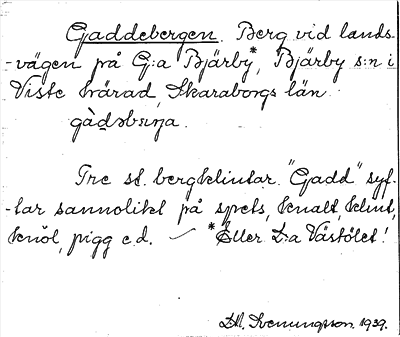 Gaddebergen. Berg vid lands-
-vägen på G:a Bjärby*, Bjärby s:n i
Viste härad, Skaraborgs län.
gàdəbærja.
Tre st. bergklintar. "Gadd" syf-
-tar sannolikt på spets, knalt, klint,
knöl, pigg e.d. *Eller L:a Västölet!
Svenungsson. 1939.